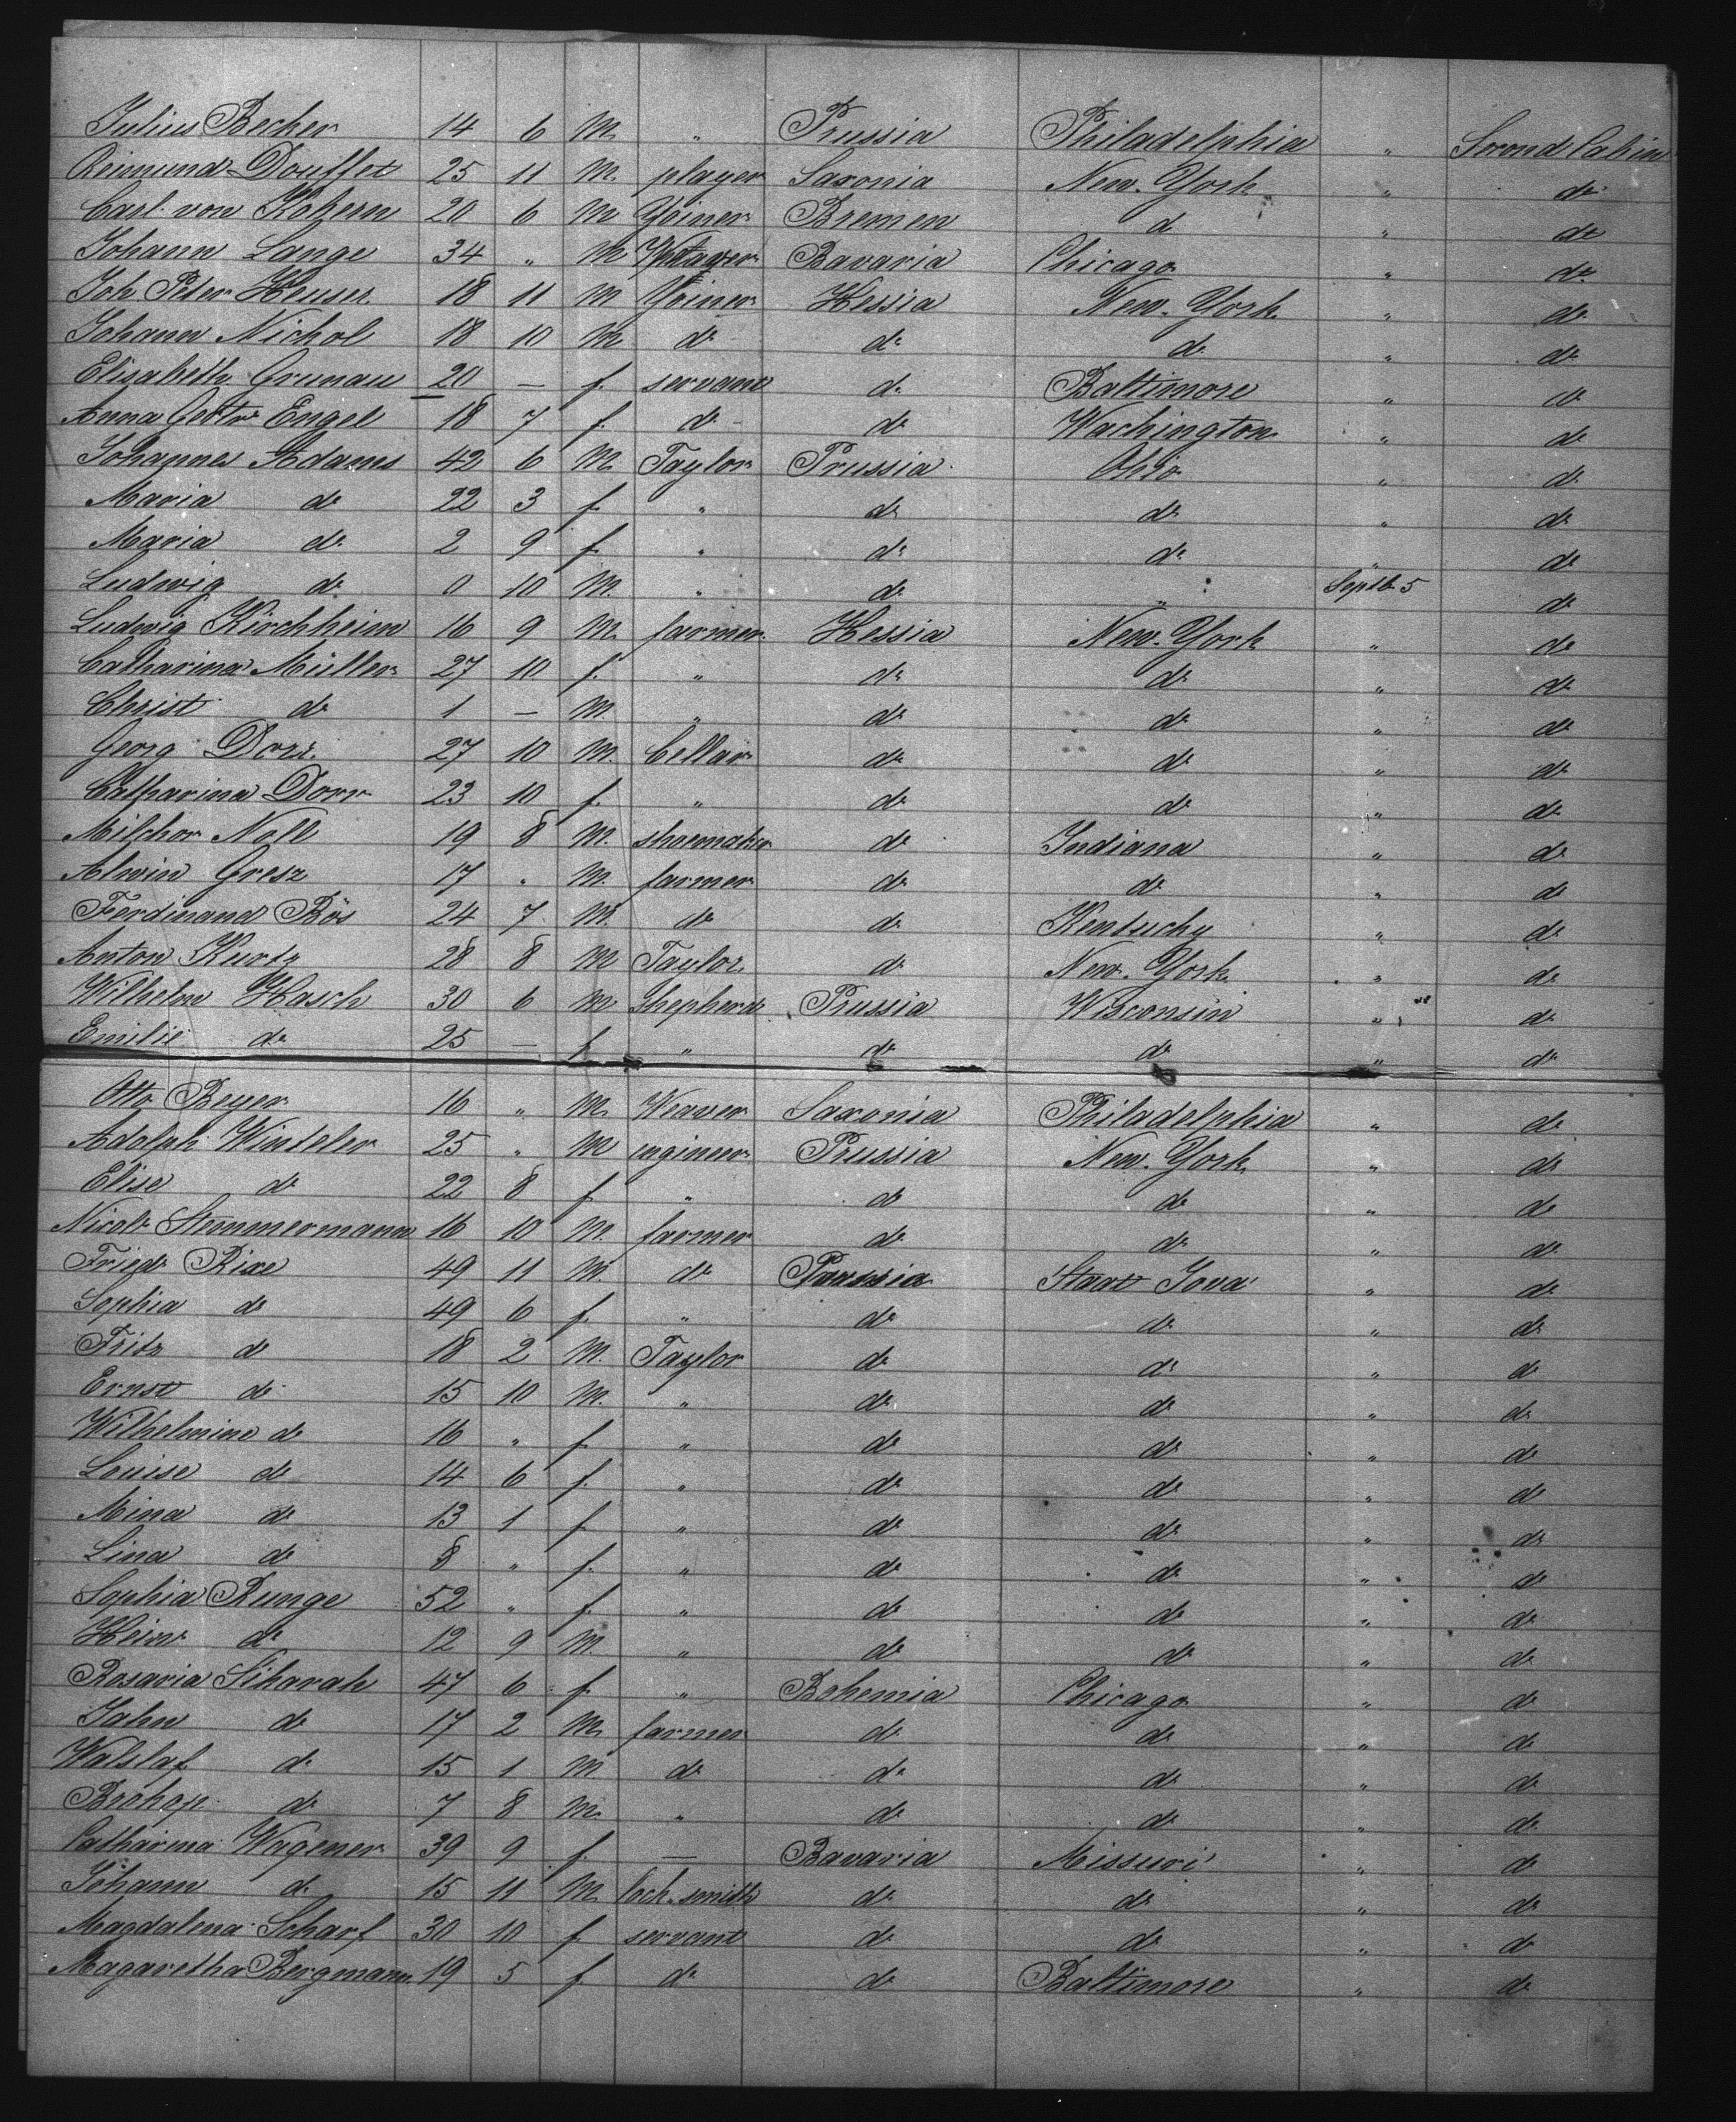 Julius Becker 14 6 M. " Prussia Philadelphia " Second Cabin
Reimund Douffet 25 11 M. player Saxonia New-York " do
Carl von Kohern 20 6 M Yoiner Bremen d " do
Johann Lange 34 " M Bavaria Chicago " do
Joh Peter Heuser 18 11 M Yoiner Hessia New-York " do
Johann Nichol 18 10 M do do do " do
Elisabeth Grunau 20 — f. servant do Baltimore " do
Anna Engel 18 7 f. do do Wachington " do
Johannes Adams 42 6 M. Taylor Prussia Ohio " do
Maria do 22 3 f. " do do " do
Maria do 2 9 f. " do do " do
Ludwig do 0 10 M. " do " Septb 5 do
Ludwig Kirchheim 16 9 M. farmer Hessia New-York " do
Catharina Müller 27 10 f. " do do " do
Christ do 1 — M. " do do " do
Georg Dorr 27 10 M. Cellar do do " do
Catharina Dorr 23 10 f. " do do " do
Milchor Noll 19 8 M. shoemaker do Indiana " do
Alwin Gresz 17 " M. farmer do do " do
Ferdinand Bös 24 7 M. do do Kentucky " do
Anton Kurtz 28 8 M Taylor do New-York " do
Wilhelm Hasch 30 6 M Shepherd Prussia Wisconsin " do
Emilie do 25 — f " do do " do
Otto Beyer 16 " M. Weaver Saxonia Philadelphia " do
Adolph Winteler 25 " M engineer Prussia New-York " do
Elise do 22 8 f " do do " do
Nicolt Stummermann 16 10 M. farmer do do " do
Friedr Rixe 49 11 M. do Prussia Staat Iova " do
Sophia do 49 6 f. " do do " do
Fritz do 18 2 M. Taylor do do " do
Ernst do 15 10 M. " do do " do
Wilhelmine do 16 " f. " do do " do
Louise do 14 6 f. " do do " do
Mina do 13 1 f " do do " do
Lina do 8 " f. " do do " do
Sophia Runge 52 " f. " do do " do
Heinr do 12 9 M. " do do " do
Rosaria Siharah 47 6 f. " Bohemia Chicago " do
Jahn do 17 2 M. farmer do do " do
Walslaf do 15 1 M. do do do " do
Brohop do 7 8 M. " do do " do
Catharina Wagener 39 9 f. — Bavaria Missuri " do
Johann do 15 11 M loch-smith do do " do
Magdalena Scharf 30 10 f. servant do do " do
Magaretha Bergmann 19 5 f. do do Baltimore " do